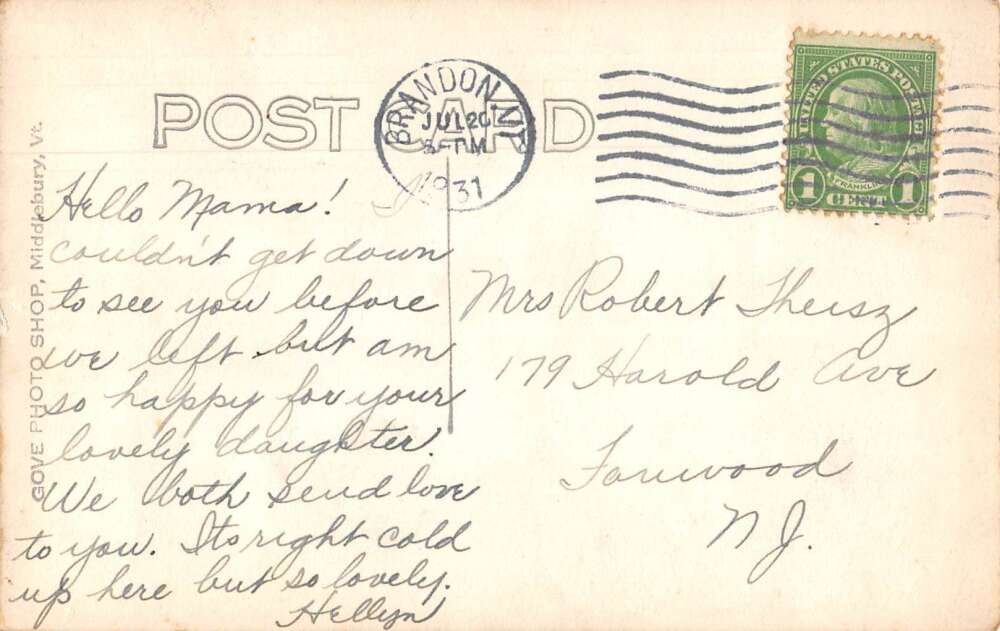 POST CARD
BRANDON, VT.
JUL 20
1931
UNITED STATES POSTAGE
FRANKLIN
1 CENT 1
GOVE PHOTO SHOP, Middlebury, Vt.
Hello Mama!
couldn't get down
to see you before
we left but am
so happy for your
lovely daughter.
We both send love
to you. Its right cold
up here but so lovely.
Hellyn
Mrs Robert Theisz
179 Harold Ave
Fanwood
N J.